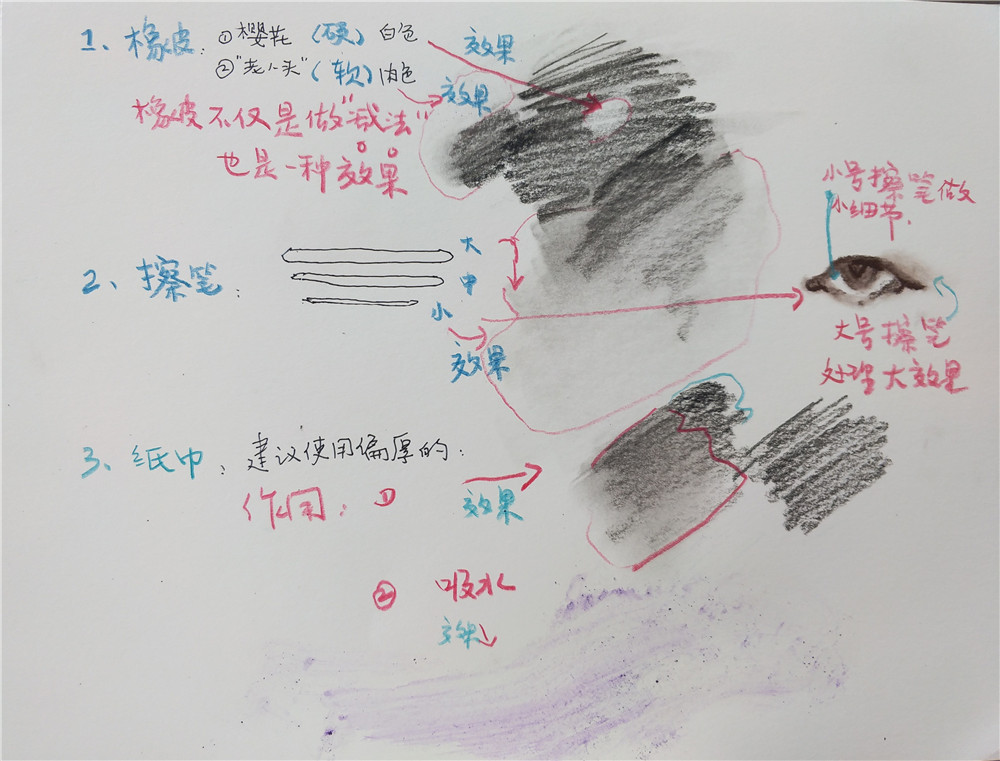 1、橡皮：①樱花（硬）白色
②"老人头"（软）肉色
效果
效果
橡皮不仅是做"减法"
也是一种效果
2、擦笔：
大
中
小
效果
小号擦笔做
小细节.
大号擦笔
处理大效果
3、纸巾：建议使用偏厚的：
作用：①
效果
② 吸水
效果